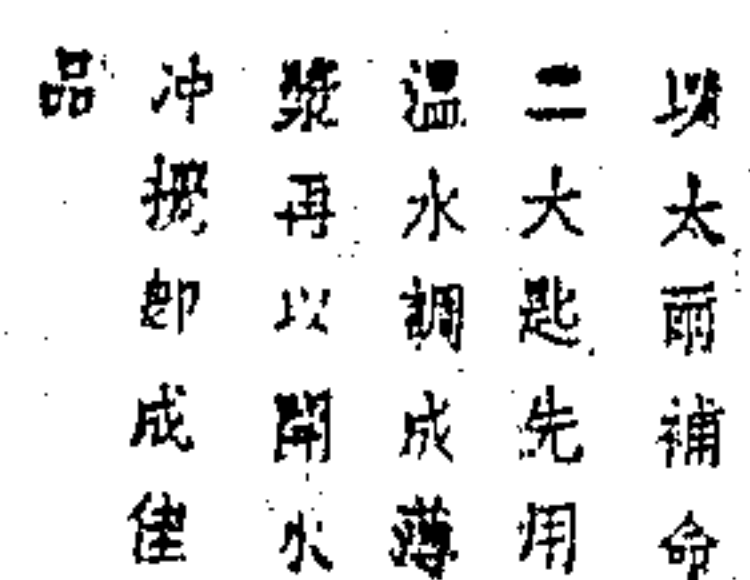 太補命
二大匙先用
溫水調成薄
漿再以開水
冲攪卽成佳
品